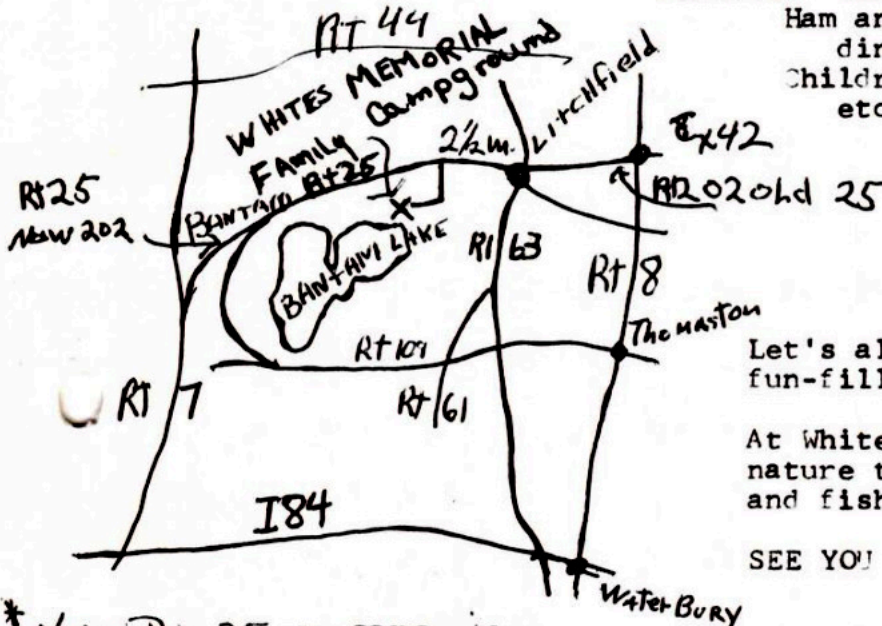 RT 44
WHITES MEMORIAL
FAMILY Campground
Litchfield
2½ m.
Ex42
Rt 202 old 25
Rt 25
Now 202
BANTAM Rt 25
BANTAM LAKE
Rt 63
Rt 8
Thomaston
Rt 109
Rt 61
Rt 7
I84
WaterBury
Ham ar
dir
Childr
etc
Let's al
fun-fill
At White
nature t
and fish
SEE YOU